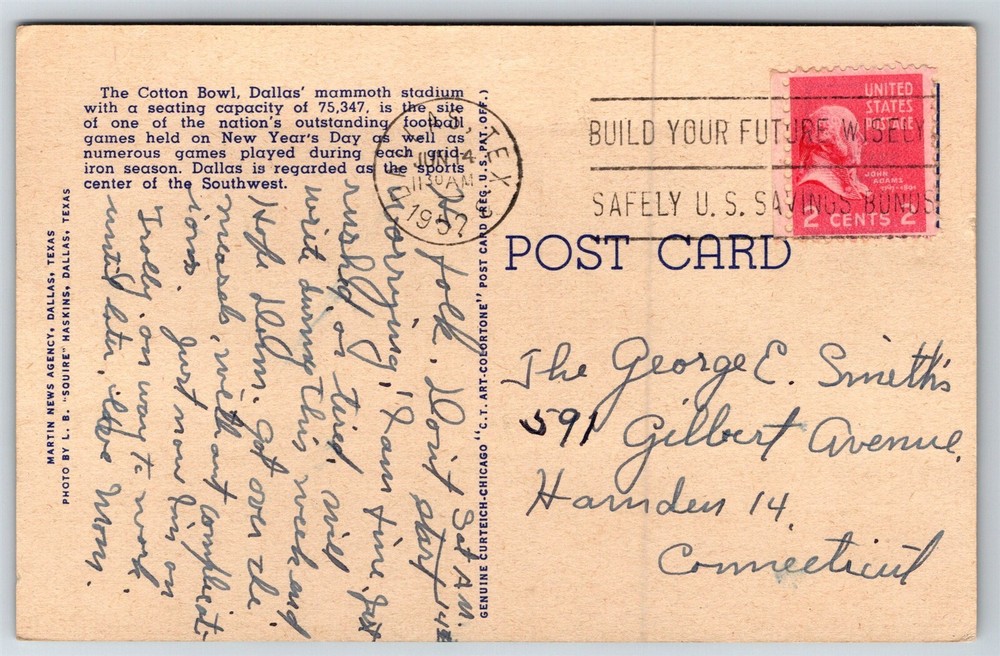 The Cotton Bowl, Dallas' mammoth stadium
with a seating capacity of 75,347, is the site
of one of the nation's outstanding football
games held on New Year's Day as well as
numerous games played during each grid-
iron season. Dallas is regarded as the sports
center of the Southwest.
MARTIN NEWS AGENCY, DALLAS, TEXAS
PHOTO BY L. B. "SQUIRE" HASKINS, DALLAS, TEXAS
Sat A.M.
14th
Hi folk. Don't start
worrying, I am fine, just
rushed or tired, will
write during this week and
Hope got over the
measels, without complicat-
ions. Just now I'm on
Trolly on way to work
until later, love Mom.
GENUINE CURTEICH-CHICAGO "C.T. ART-COLORTONE" POST CARD (REG. U.S. PAT. OFF.)
DALLAS, TEX
JUN 14
1130 AM
1952
BUILD YOUR FUTURE WISELY
SAFELY U.S. SAVINGS BONDS
UNITED
STATES
POSTAGE
JOHN
ADAMS
2 CENTS 2
POST CARD
The George E. Smith's
591 Gilbert Avenue.
Hamden 14,
Connecticut